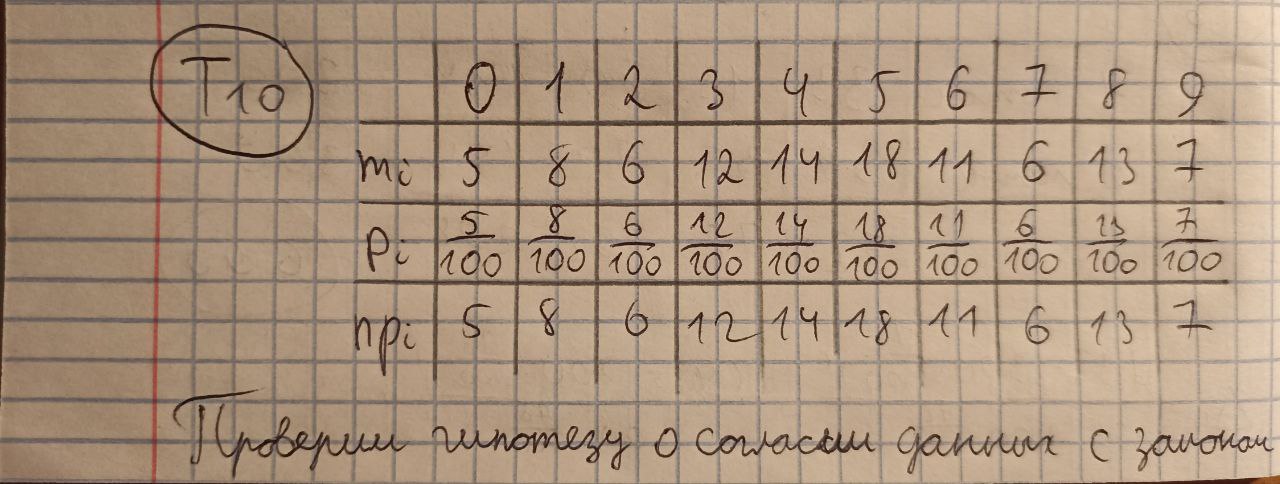 T10
0 1 2 3 4 5 6 7 8 9
mi 5 8 6 12 14 18 11 6 13 7
pi 5/100 8/100 6/100 12/100 14/100 18/100 11/100 6/100 13/100 7/100
npi 5 8 6 12 14 18 11 6 13 7
Проверим гипотезу о согласии данных с законом